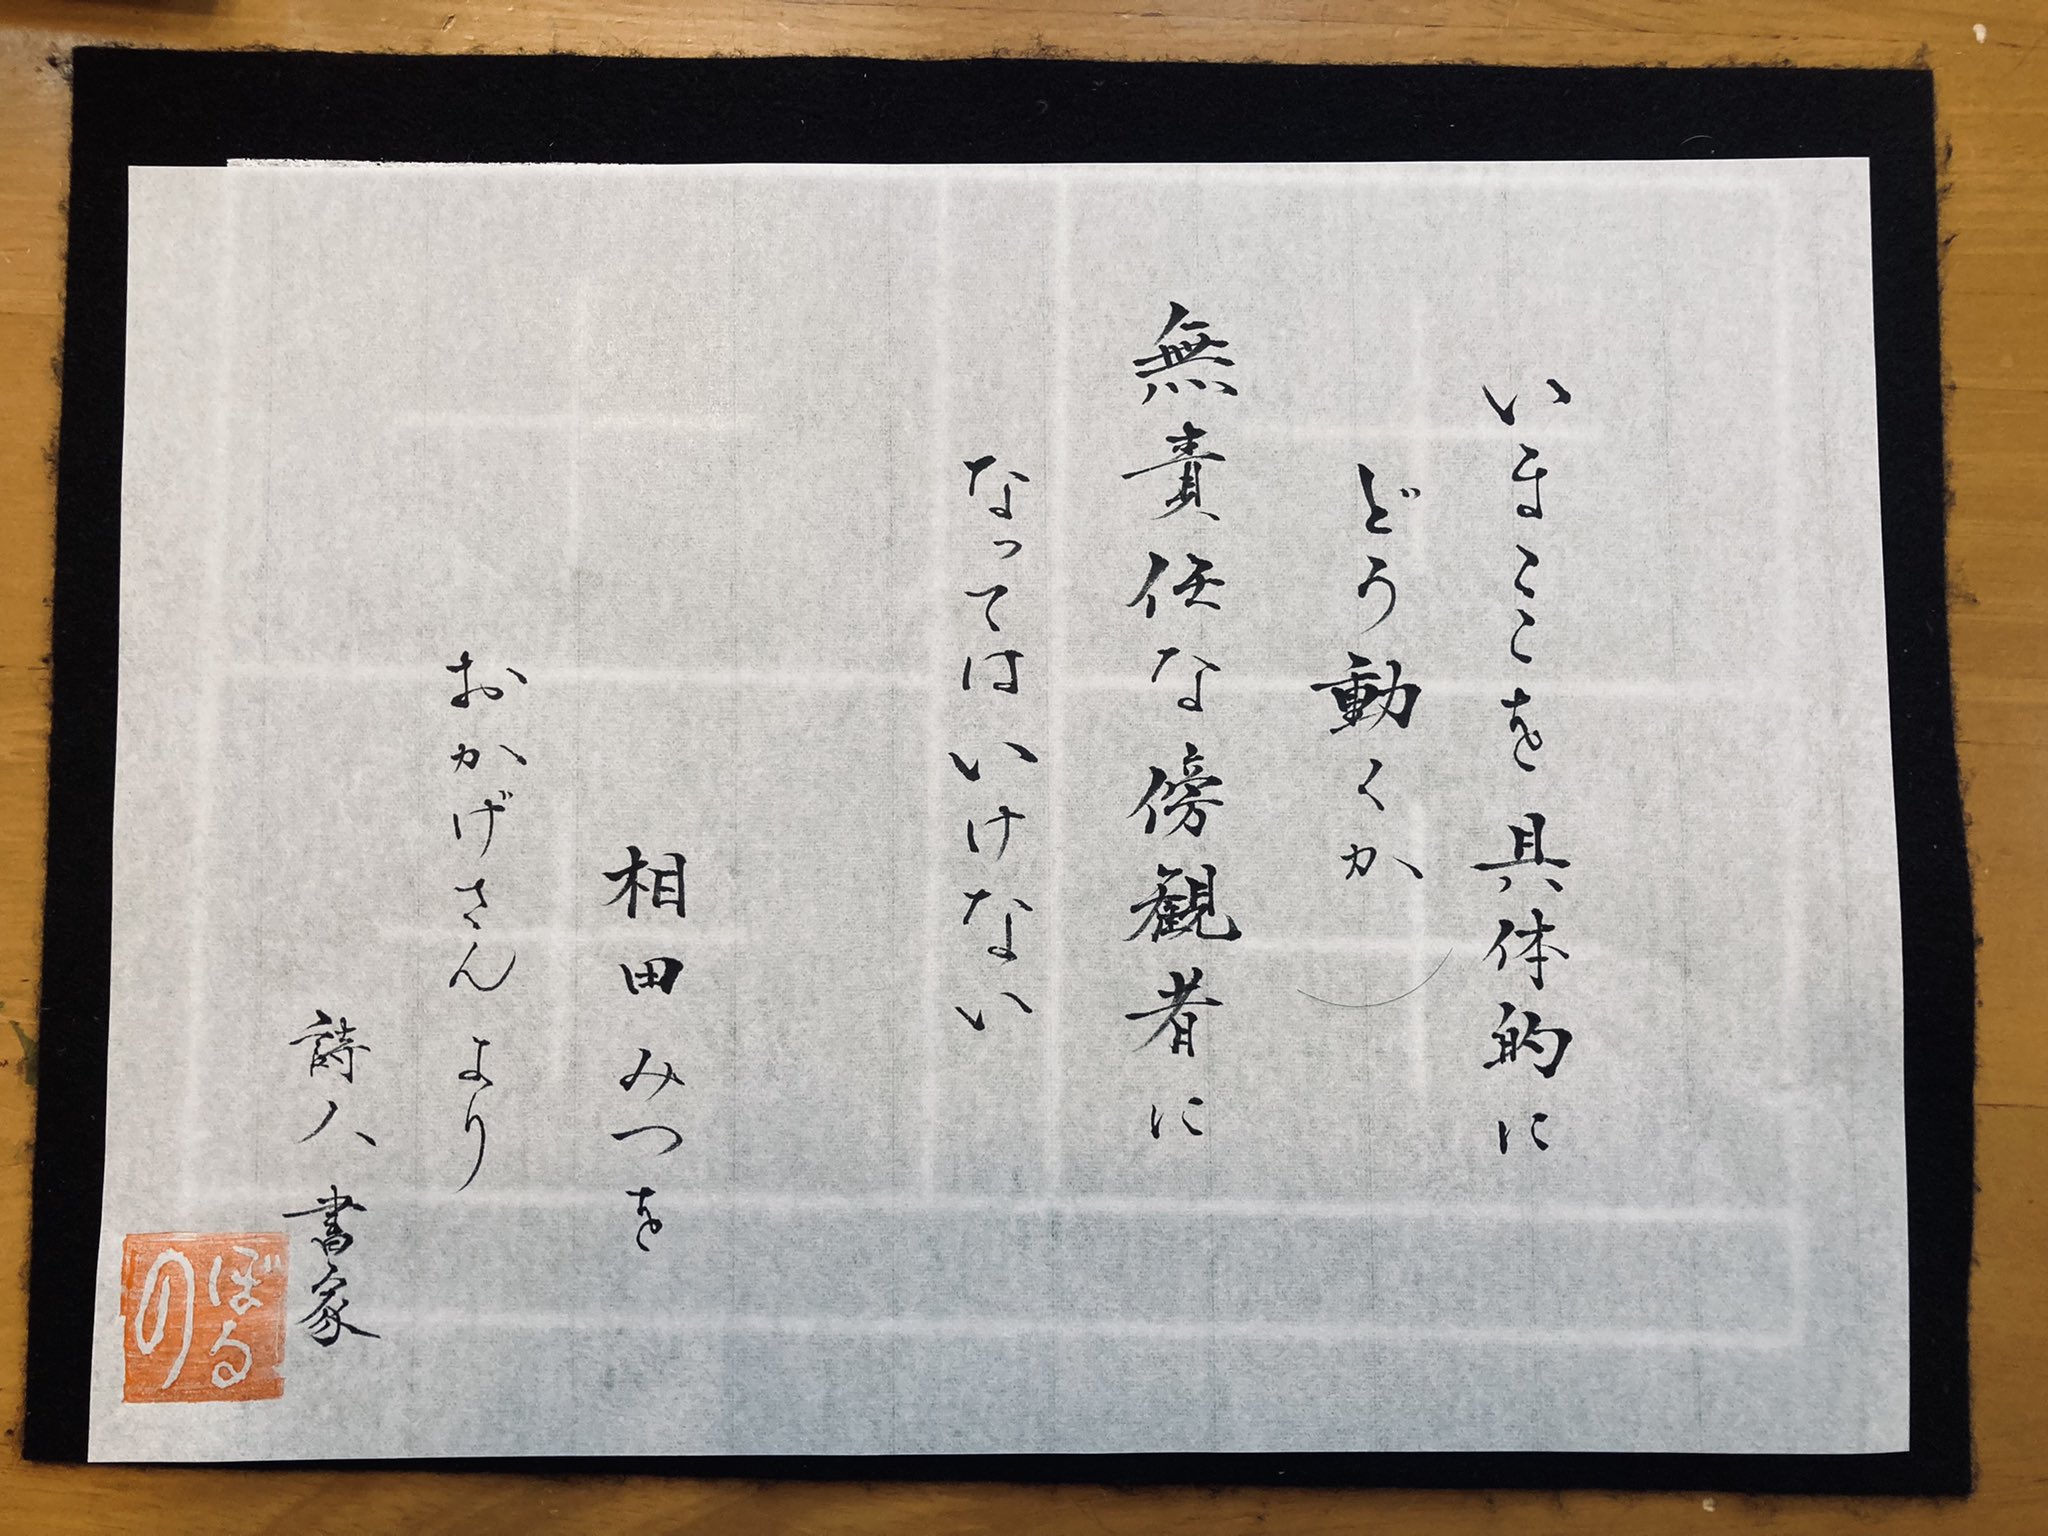 いまここを具体的に
どう動くか
無責任な傍観者に
なってはいけない
相田みつを
おかげさんより
詩人書家
ぼる
の